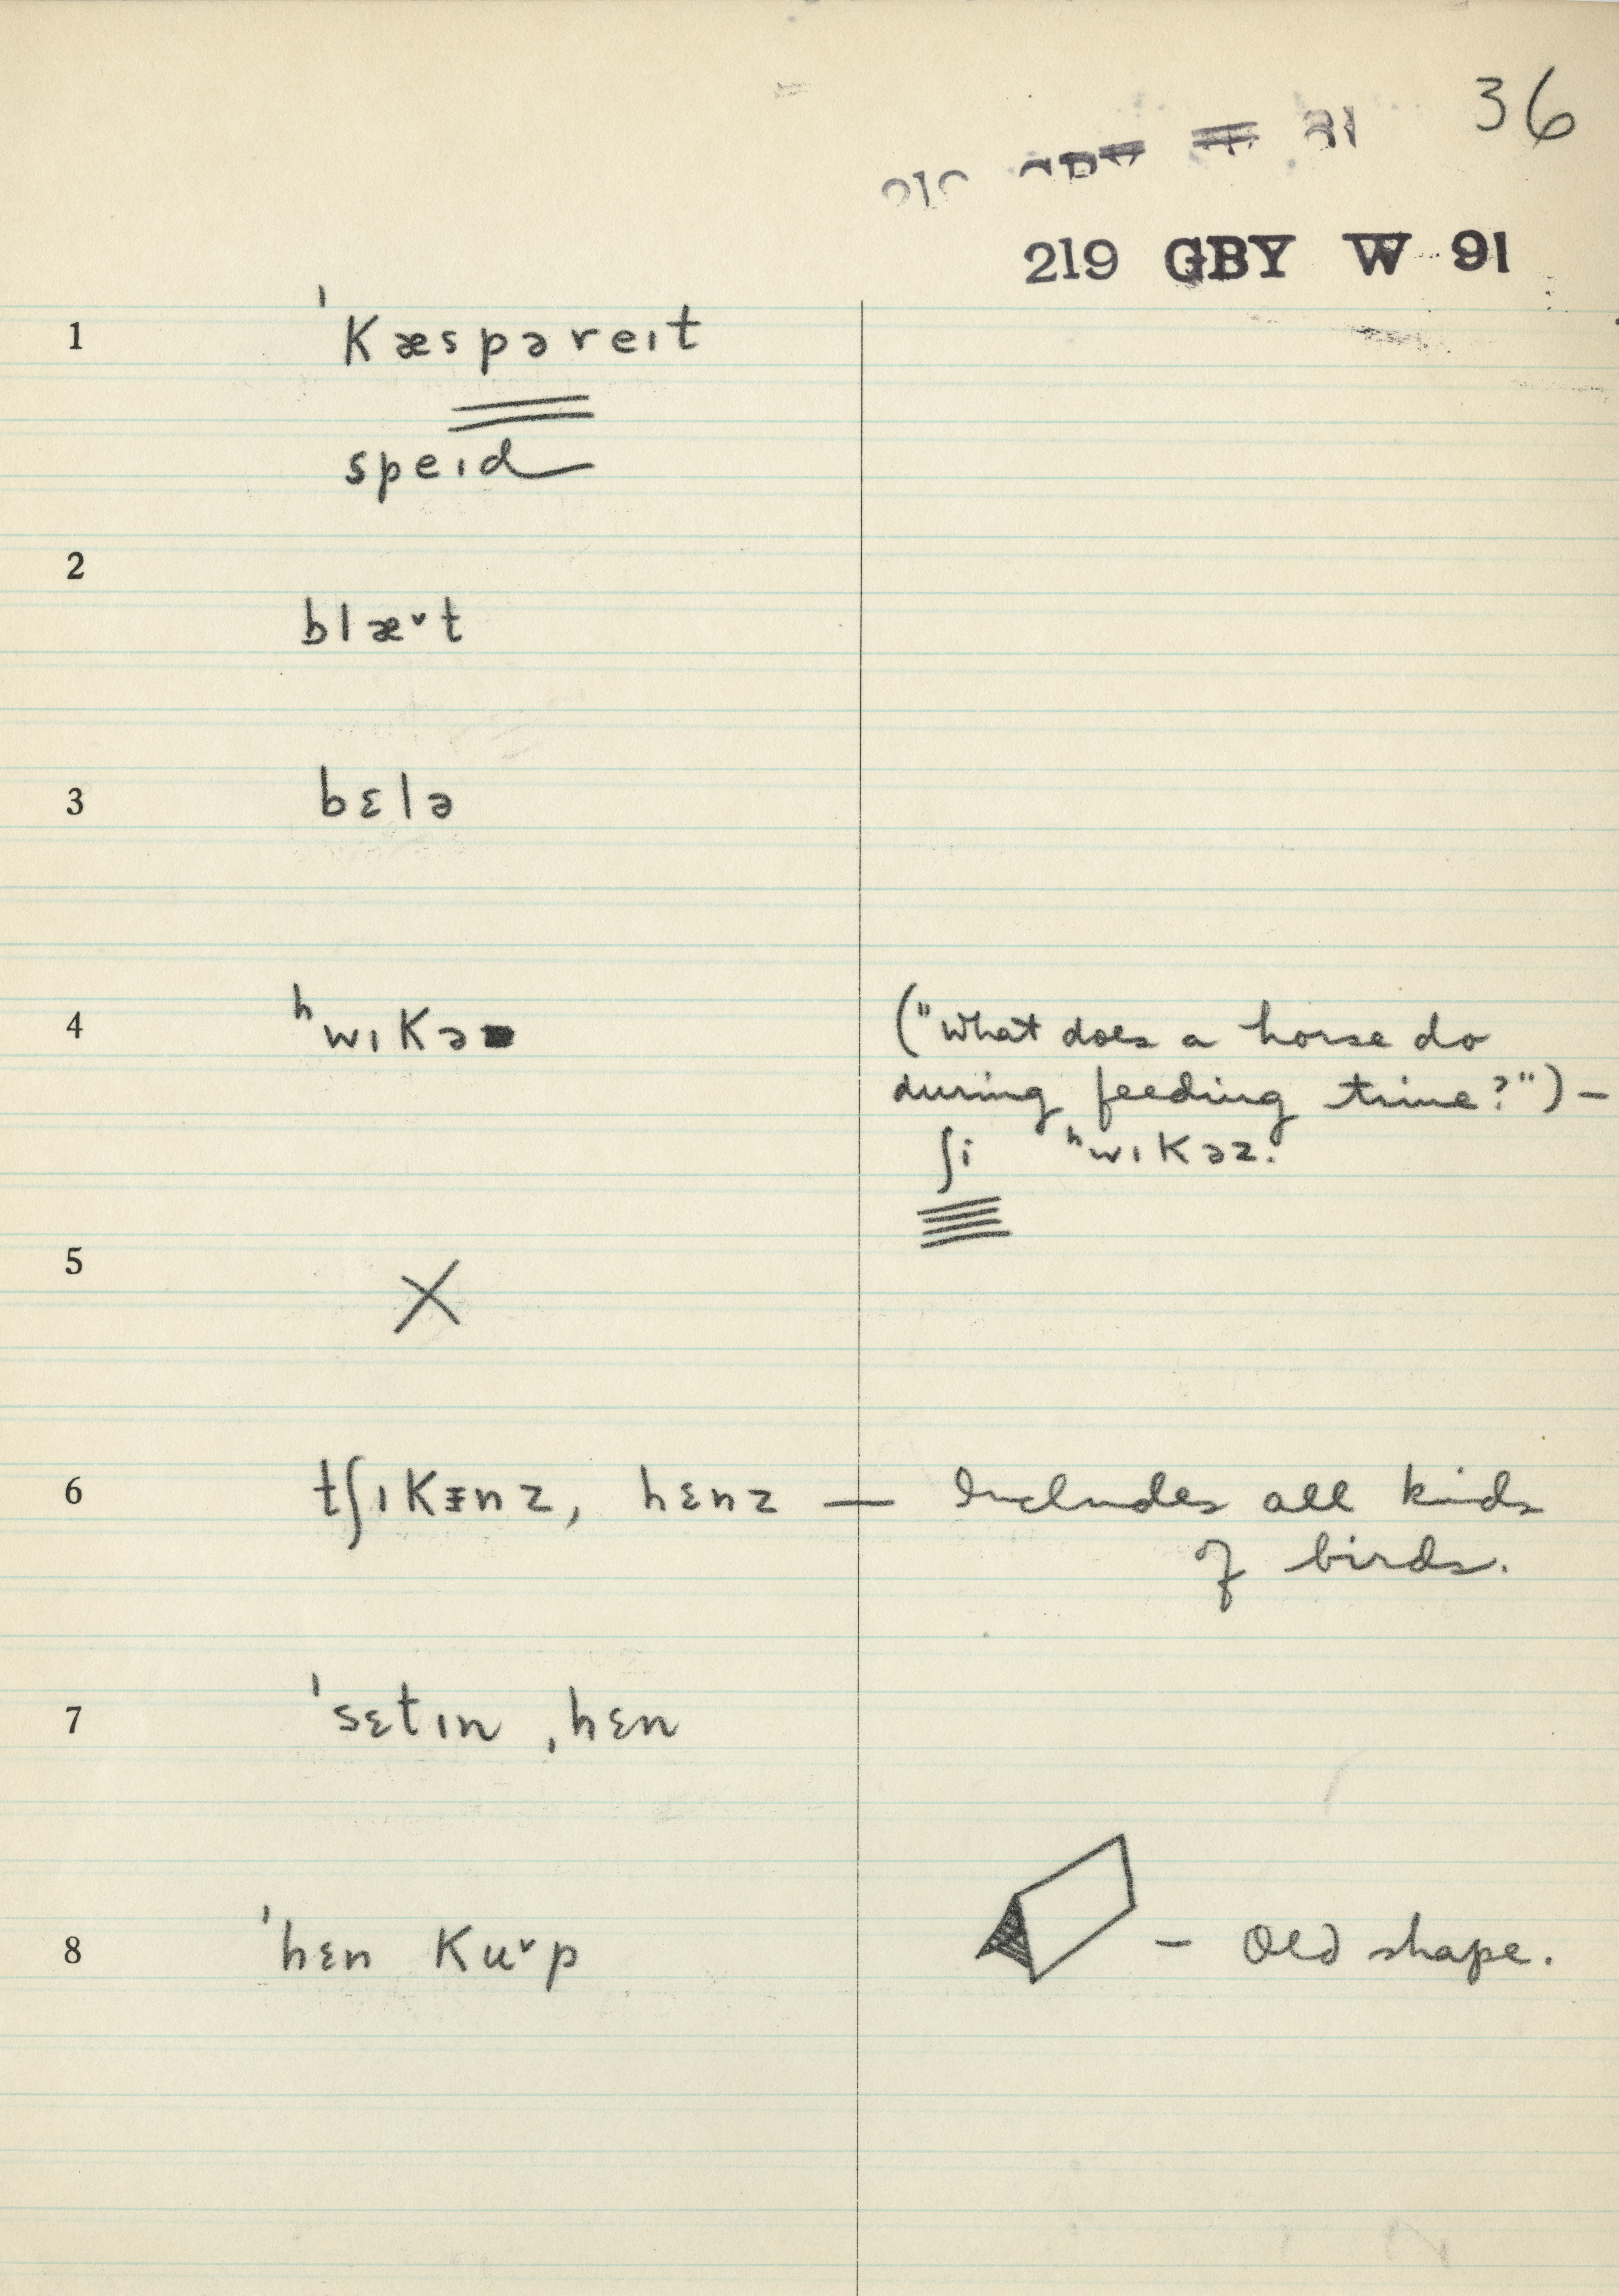 36
219 GBY W 91
1 ˈkæspəreɪt
speɪd
2 blæˇt
3 bɛlə
4 ʰwɪkə ("What does a horse do
during feeding time?") –
ʃi ʰwɪkəz.
5 X
6 tʃɪkɪnz, hɛnz — Includes all kids
of birds.
7 ˈsɛtɪn ˌhɛn
8 ˈhɛn kuˇp – Old shape.